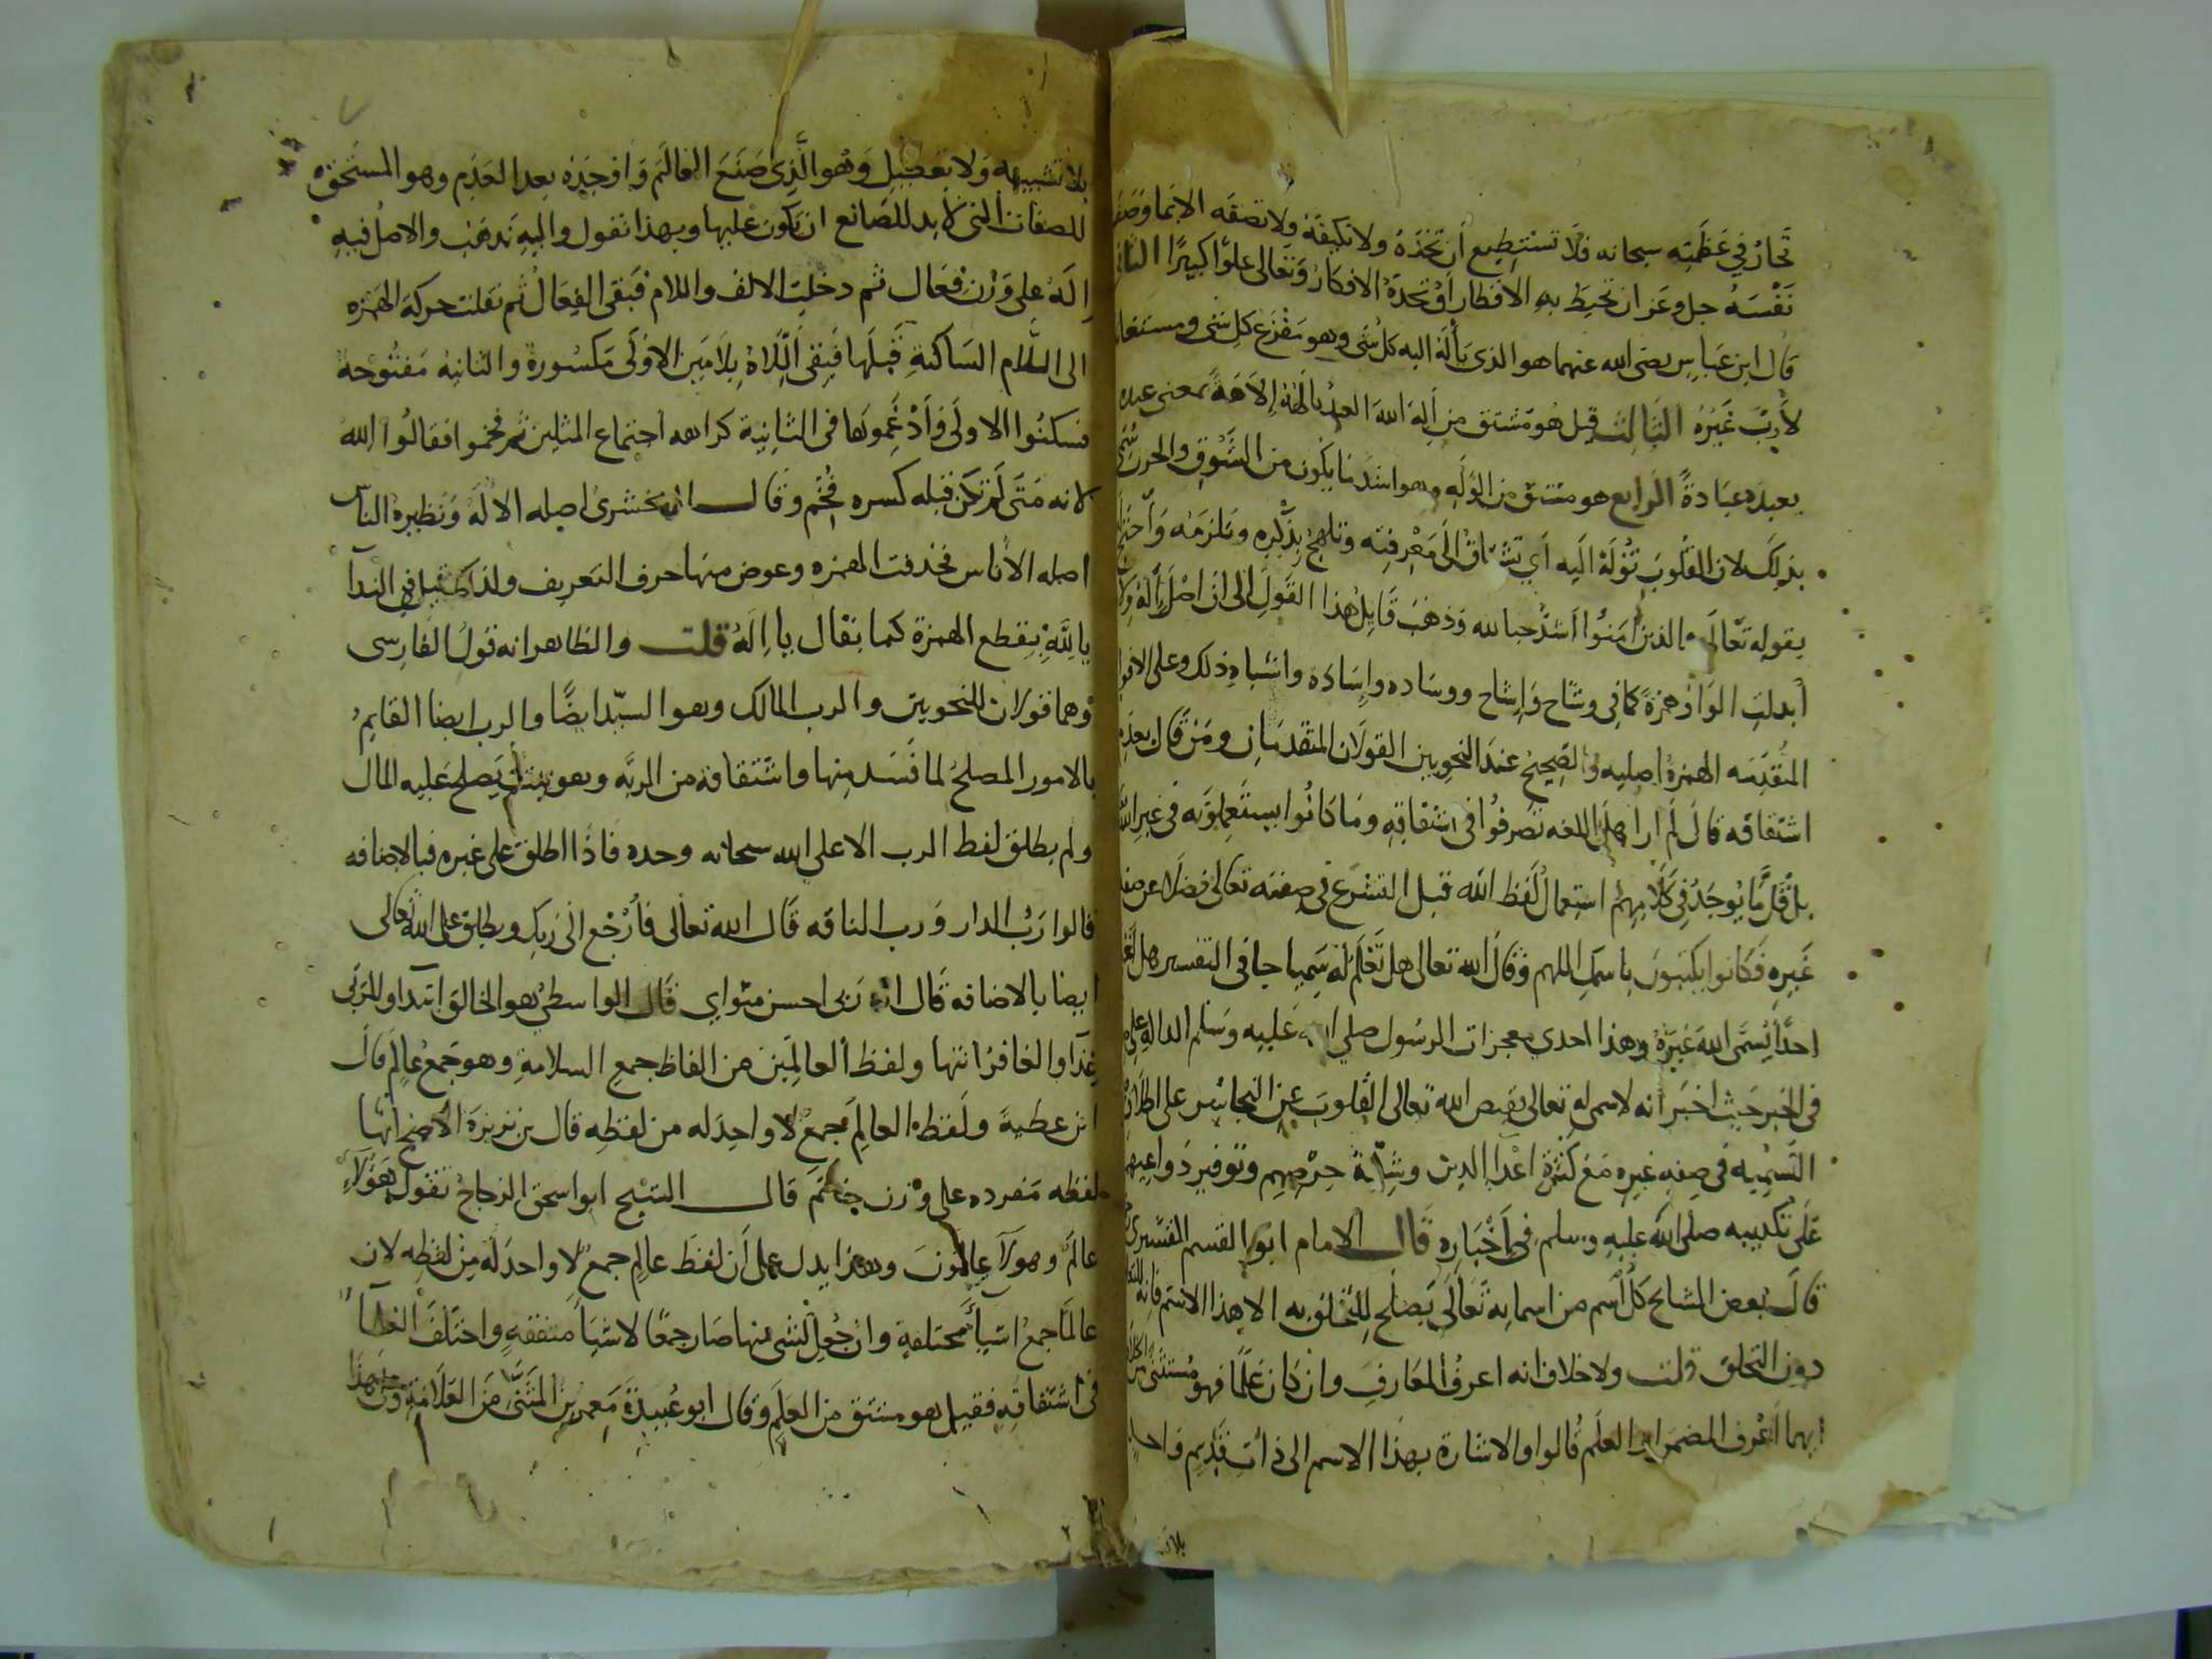 تحار في عظمته سبحانه فلا تستطيع أن تحده ولا تكيفه ولا تصفه الا بما وصف
نفسه جل وعز ان تحيط به الاقطار أو تحده الافكار وتعالى علوا كبيرا الثاني
قال ابن عباس رضى الله عنهما هو الذي يأله اليه كل شى وهو مفزع كل شى ومستغاث
لا رب غيره الثالث قيل هو مشتق من أله الله العبد يالهه إلاهة بمعنى عبده
يعبده عبادة الرابع هو مشتق من الوله وهو اشد ما يكون من الشوق والحزن سمي
بذلك لان القلوب توله اليه أي تشتاق الى معرفته وتلهج بذكره وتلزمه واحتج
بقوله تعالى والذين امنوا اشد حبا لله وذهب قايل هذا القول الى ان اصل
أبدلت الواو همزة كما في وشاح وإشاح ووساده وإسادة واشباه ذلك وعلى الاقوال
المتقدمه الهمزة اصليه والصحيح عند النحويين القولان المتقدمان ومن قال بعدم
اشتقاقه قال لم ار اهل اللغه تصرفوا في اشتقاقه وما كانوا يستعملونه في غير الله
بل قل ما يوجد في كلامهم استعمال لفظ الله قبل الشرع في صفته تعالى فضلا عن صفة
غيره فكانوا يكتبون باسمك اللهم وقال الله تعالى هل تعلم له سميا جا في التفسير هل تعلم
احدا يسمى الله غيره وهذا احدى معجزات الرسول صلي الله عليه وسلم الدالة على
في الخبر حيث اخبر انه لا سمي له تعالى بقبض الله تعالى القلوب عن التجاسر على اطلاق
التسميه في صفه غيره مع كثرة اعدا الدين وشدة حرصهم وتوفير دواعيهم
على تكذيبه صلى الله عليه وسلم في أخباره قال الامام ابو القسم القشيري
قال بعض المشايخ كل اسم من اسمايه تعالى يصلح للتخلق به الا هذا الاسم فانه للتعلق
دون التخلق قلت ولا خلاف انه اعرف المعارف وان كان علما فهو مستثنى من الخلاف
ايهما اعرف المضمر ام العلم قالوا والاشارة بهذا الاسم الى ذات قديم واحد
بلا
بلا تشبيه ولا تعطيل وهو الذي صنع العالم واوجده بعد العدم وهو المستحق
للصفات التي لا بد للصانع ان يكون عليها وبهذا نقول واليه نذهب والاصل فيه
إله على وزن فعال ثم دخلت الالف واللام فبقى الفعال ثم نقلت حركة الهمزه
الى اللام الساكنة قبلها فبقى أللاه بلامين الاولى مكسورة والثانيه مفتوحة
فسكنوا الاولى وادغموها في الثانية كراهه اجتماع المثلين ثم فخموا فقالوا الله
لانه متى لم تكن قبله كسره فخم وقال الزمخشرى اصله الاله ونظيره الناس
اصله الأناس فحذفت الهمزه وعوض منها حرف التعريف ولذلك قيل في الندآ
يا لله بقطع الهمزة كما يقال يا اله قلت والظاهر انه قول الفارسى
وهما قولان للنحويين والرب المالك وهو السيد ايضا والرب ايضا القايم
بالامور المصلح لما فسد منها واشتقاقه من المربه وهو يصلح عليه المال
ولم يطلق لفظ الرب الا على الله سبحانه وحده فاذا اطلق على غيره فبالاضافه
قالوا رب الدار ورب الناقه قال الله تعالى فأرجع الى ربك ويطلق على الله تعالى
ايضا بالاضافه قال انه ربى احسن مثواي قال الواسطى هو الخالق ابتدآ والمربى
غذآ والغافر انتها ولفظ العالمين من الفاظ جمع السلامة وهو جمع عالم قال
ابن عطية ولفظه العالم جمع لا واحد له من لفظه قال بن بزيزة الاصح انها
لفظه مفرده على وزن خاتم قال الشيخ ابو اسحق الزجاج تقول هؤلاء
عالم وهولآ عالمون وهذا يدل على أن لفظ عالم جمع لا واحد له من لفظه لان
عالما جمع اشيآ مختلفة وان جعل لشى منها صار جمعا لاشيآ متفقة واختلف العلمآ
في اشتقاقه فقيل هو مشتق من العلم وقال ابو عبيدة معمر بن المثنى من العلامة وعن هذا